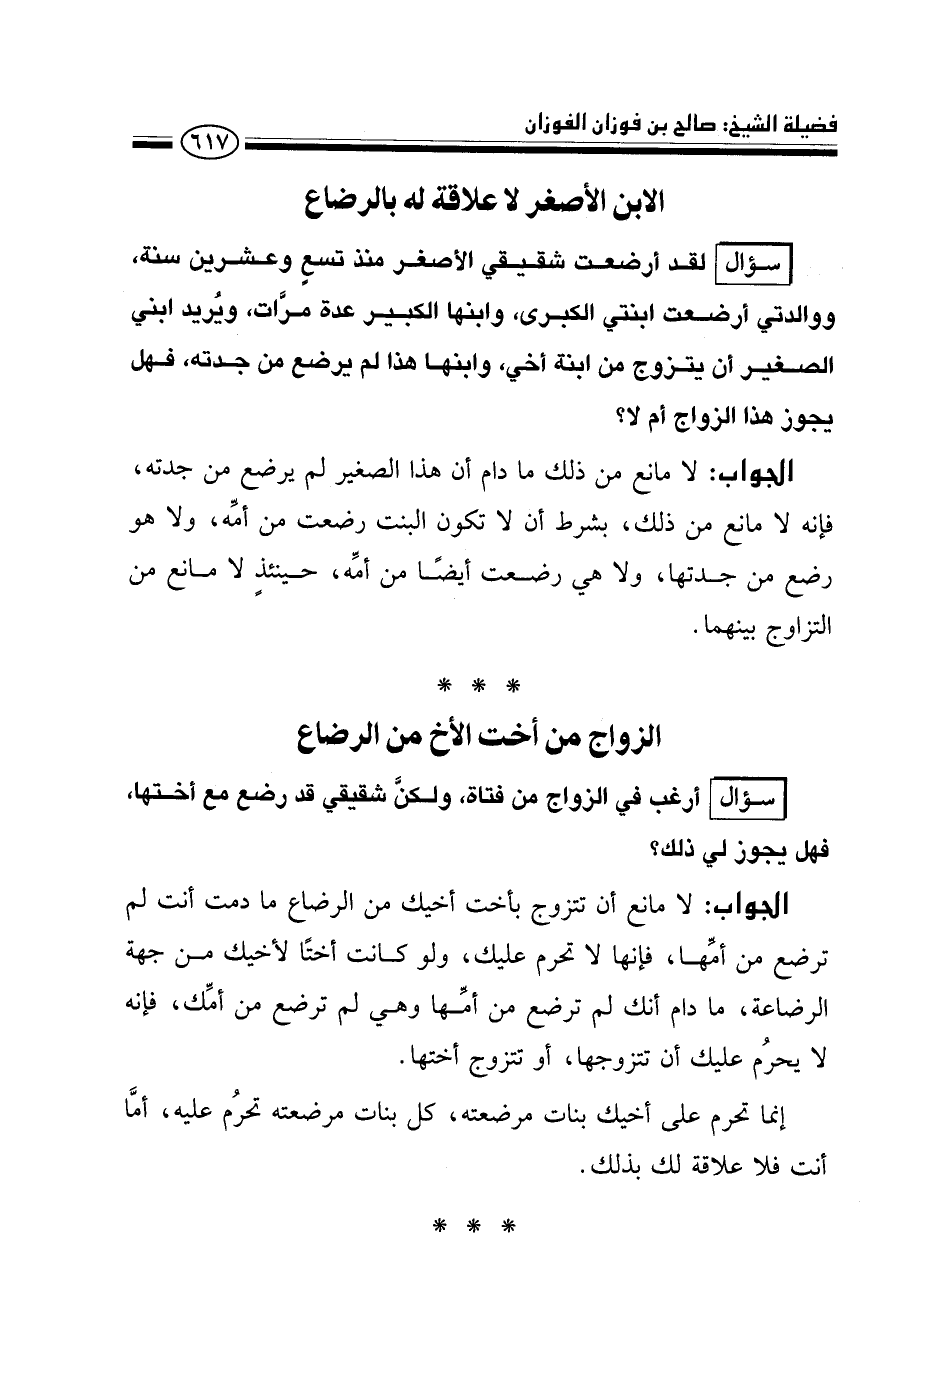 فضيلة الشيخ: صالح بن فوزان الفوزان
٦١٧
الابن الأصغر لا علاقة له بالرضاع
سؤال لقد أرضعت شقيقي الأصغر منذ تسعٍ وعشرين سنة،
ووالدتي أرضعت ابنتي الكبرى، وابنها الكبير عدة مرَّات، ويُريد ابني
الصغير أن يتزوج من ابنة أخي، وابنها هذا لم يرضع من جدته، فهل
يجوز هذا الزواج أم لا؟
الجواب: لا مانع من ذلك ما دام أن هذا الصغير لم يرضع من جدته،
فإنه لا مانع من ذلك، بشرط أن لا تكون البنت رضعت من أمِّه، ولا هو
رضع من جدتها، ولا هي رضعت أيضًا من أمِّه، حينئذٍ لا مانع من
التزاوج بينهما.
* * *
الزواج من أخت الأخ من الرضاع
سؤال أرغب في الزواج من فتاة، ولكنَّ شقيقي قد رضع مع أختها،
فهل يجوز لي ذلك؟
الجواب: لا مانع أن تتزوج بأخت أخيك من الرضاع ما دمت أنت لم
ترضع من أمِّها، فإنها لا تحرم عليك، ولو كانت أختًا لأخيك من جهة
الرضاعة، ما دام أنك لم ترضع من أمِّها وهي لم ترضع من أمِّك، فإنه
لا يحرُم عليك أن تتزوجها، أو تتزوج أختها.
إنما تحرم على أخيك بنات مرضعته، كل بنات مرضعته تحرُم عليه، أمَّا
أنت فلا علاقة لك بذلك.
* * *